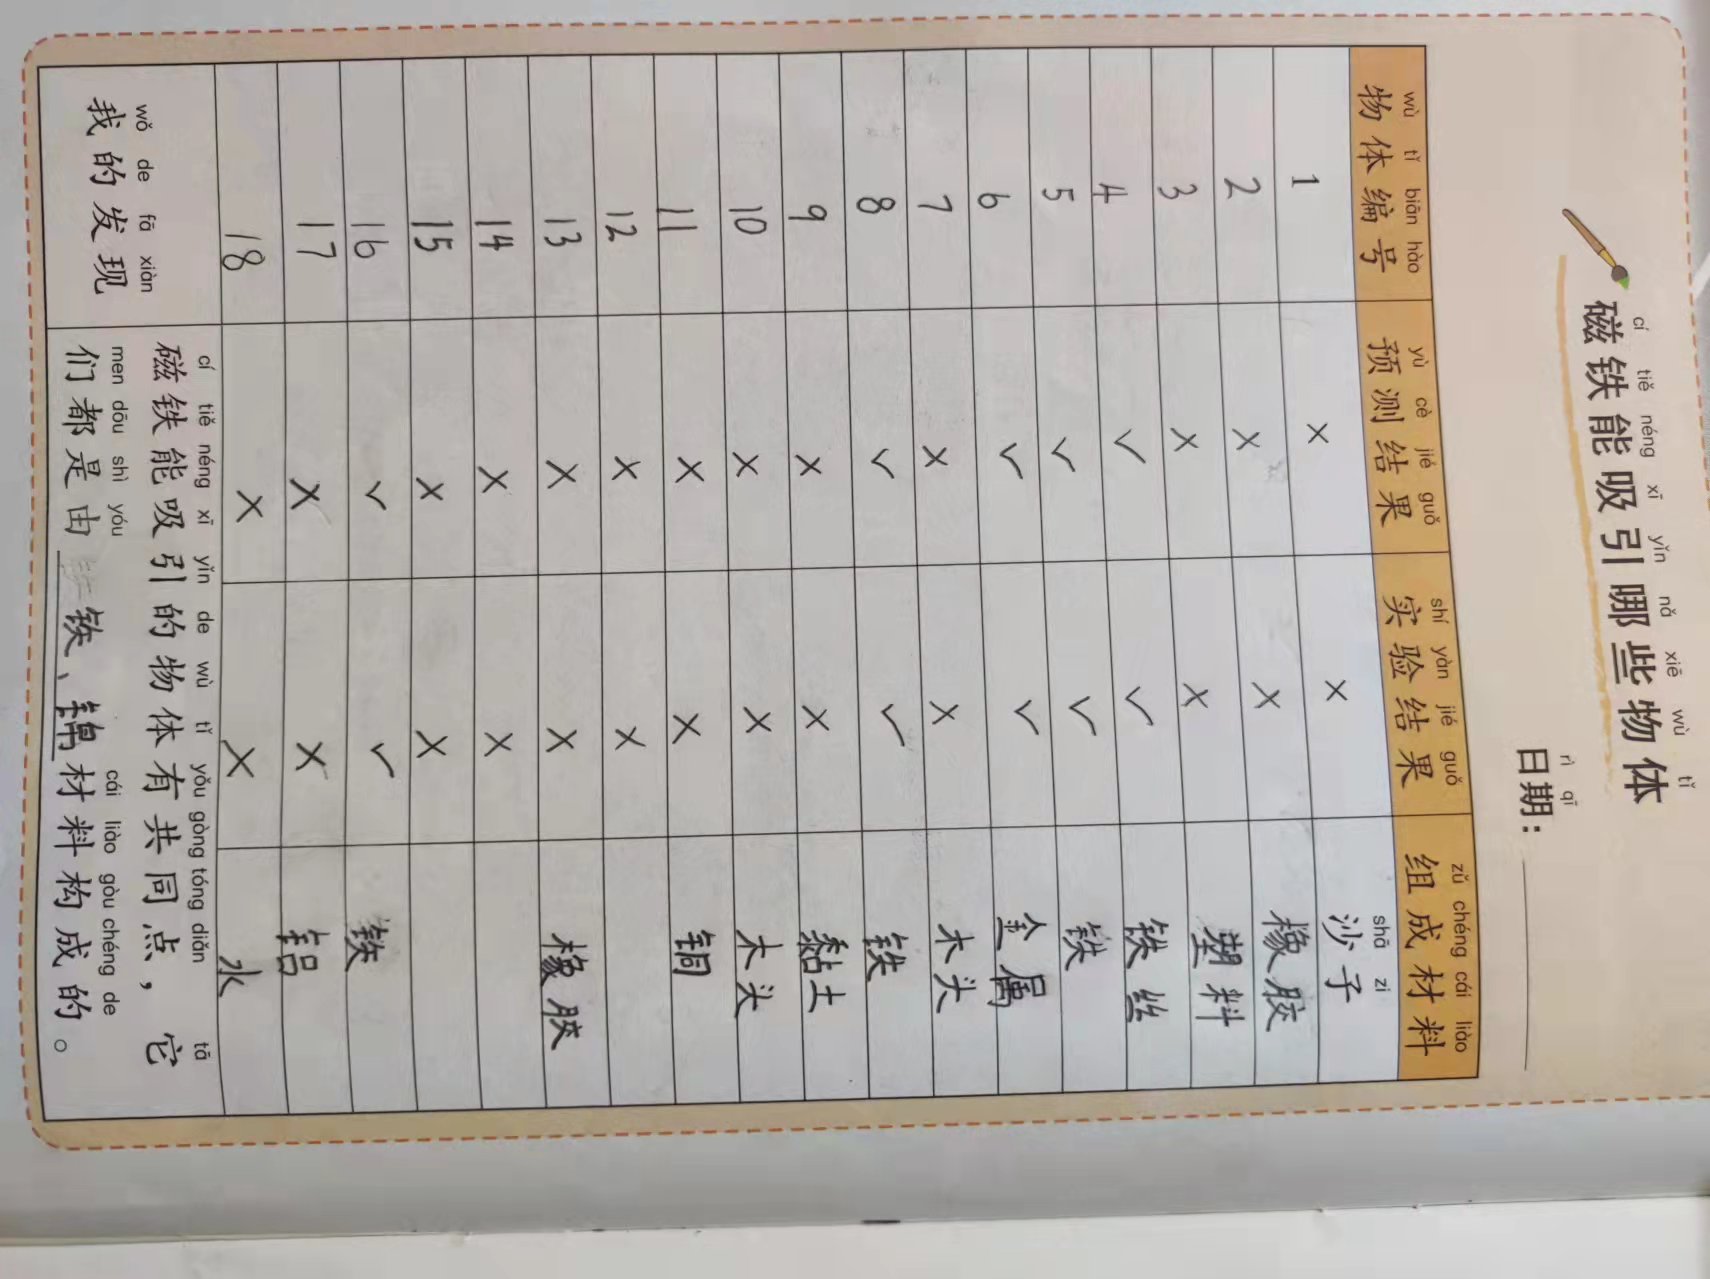 cí tiě néng xī yǐn nǎ xiē wù tǐ
磁铁能吸引哪些物体
rì qī
日期:
wù tǐ biān hào yù cè jié guǒ shí yàn jié guǒ zǔ chéng cái liào
物体编号 预测结果 实验结果 组成材料
shā zi
1 × × 沙子
2 × × 橡胶
3 × × 塑料
4 √ √ 铁丝
5 √ √ 铁
6 √ √ 金属
7 × × 木头
8 √ √ 铁
9 × × 黏土
10 × × 木头
11 × × 铜
12 × ×
13 × × 橡胶
14 × ×
15 × ×
16 √ √ 铁
17 × × 铝
18 × × 水
wǒ de fā xiàn
我的发现
cí tiě néng xī yǐn de wù tǐ yǒu gòng tóng diǎn tā
磁铁能吸引的物体有共同点，它
men dōu shì yóu cái liào gòu chéng de
们都是由铁、锦材料构成的。